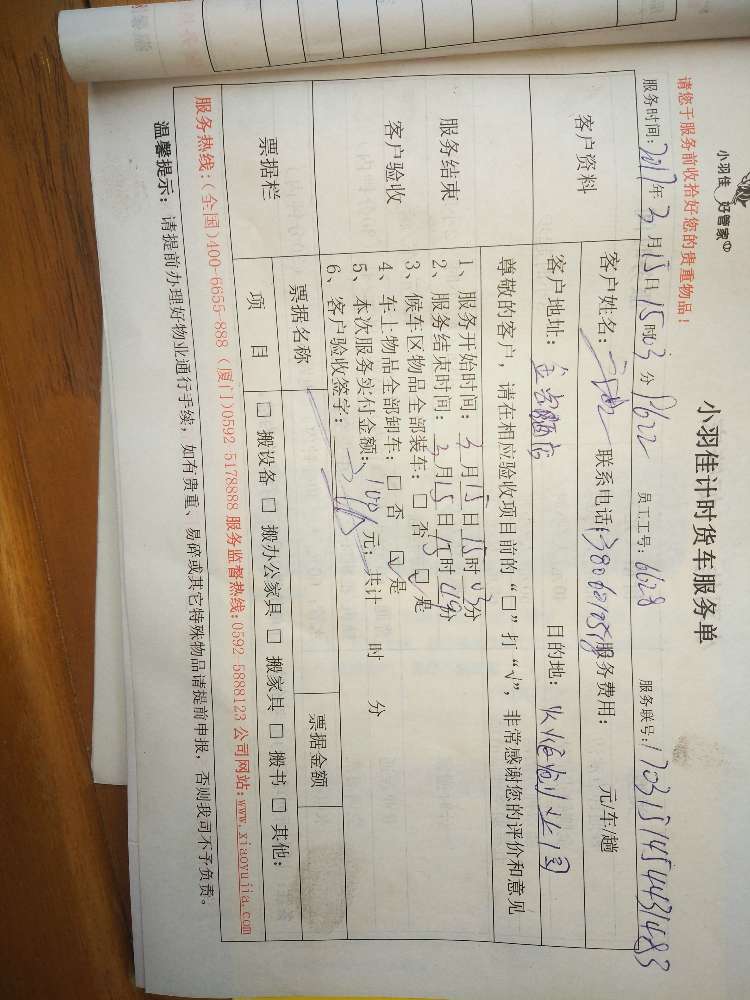 小羽佳 好管家
小羽佳计时货车服务单
请您于服务前收拾好您的贵重物品!
服务时间:2017年3月15日15时03分 员工工号:6628 服务联号:1703151454431483
客户资料
客户姓名: 联系电话: 服务费用: 元/车/趟
客户地址: 目的地:
服务结束
客户验收
尊敬的客户,请在相应验收项目前的“□”打“√”,非常感谢您的评价和意见
1、服务开始时间:3月15日15时03分
2、服务结束时间:3月15日
3、候车区物品全部装车:□ 否 ☑ 是
4、车上物品全部卸车:□ 否 ☑ 是
5、本次服务实付金额:100元;共计 时 分
6、客户验收签字:
票据栏
票据名称 票据金额
项 目 □ 搬设备 □ 搬办公家具 □ 搬家具 □ 搬书 □ 其他:
服务热线:(全国)400-6655-888 (厦门)0592-5178888 服务监督热线:0592-5888123 公司网站:www.xiaoyujia.com
温馨提示: 请提前办理好物业通行手续,如有贵重、易碎或其它特殊物品请提前申报,否则我司不予负责。